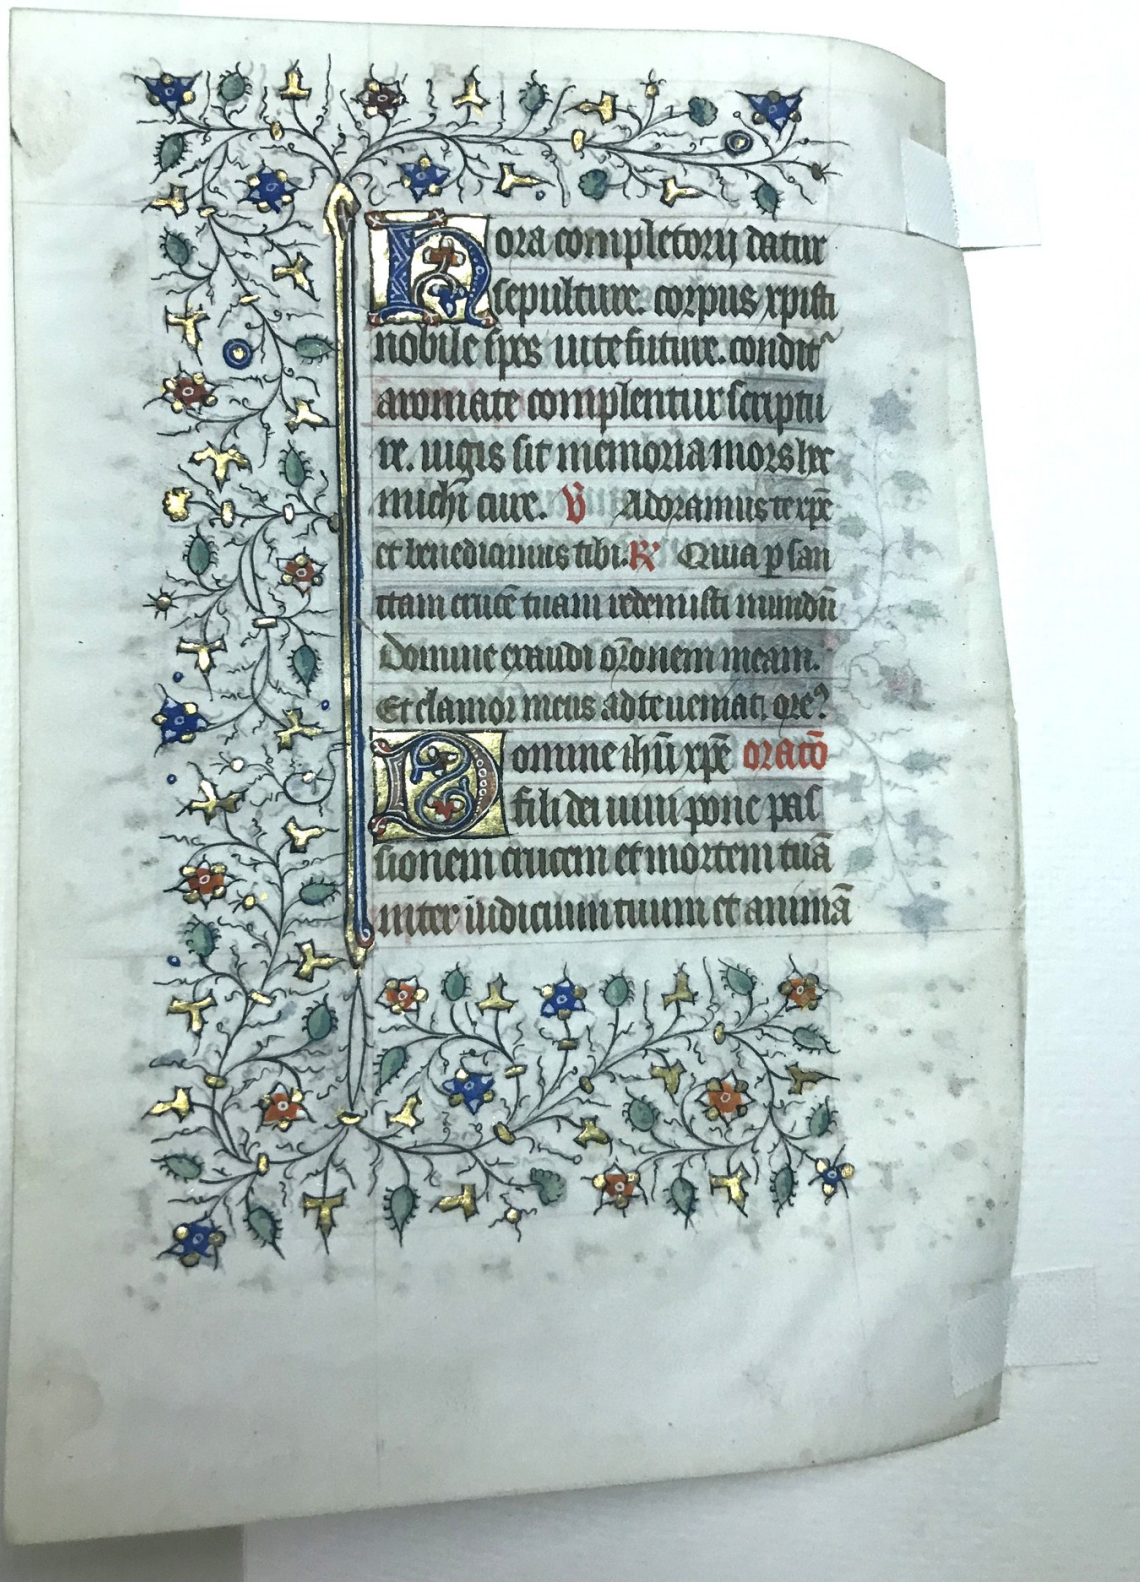 Hora completorij datur
sepulture. corpus xpisti
nobile spes uite future. condit᷑
aromate complentur scriptu
re. iugis sit memoria mors hec
michi cure. ℣ Adoramus te xp̄e
et benedicimus tibi. ℟ Quia p san
ctam crucē tuam redemisti mundū
Domine exaudi or̄onem meam.
Et clamor meus ad te ueniat. ore?
Domine ih̄u xp̄e oratō
fili dei uiui pone pas
sionem crucem et mortem tuā
inter iudicium tuum et animā